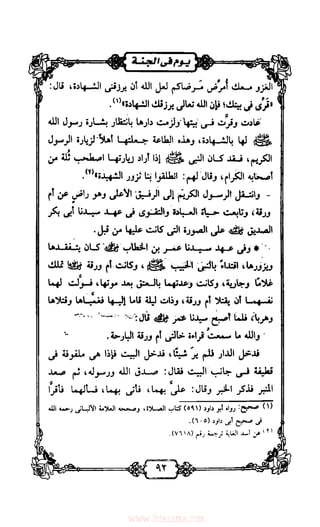 يوم في الجنة
الغزو معك أمرِّض مرضاكم لعل الله أن يرزقني الشهادة، قال:
«قرِّى في بيتك؛ فإن الله تعالى يرزقك الشهادة»(١).
عادت وقرَّت في بيتها ولزمت دارها بانتظار بشارة رسول الله
ﷺ لها بالشهادة، وهذه الطاعة جعلتها أهلاً لزيارة الرسول
الكريم، فقد كان النبي ﷺ إذا أراد زيارتها اصطحب ثلة من
أصحابه الكرام، وقال لهم: انطلقوا بنا نزور الشهيدة»(٢).
- وانتقل الرسول الكريم إلى الرفيق الأعلى وهو راضٍ عن أم
ورقة، وتابعت حياة العبادة والتقوى في عهد سيدنا أبي بكر
الصديق على الصورة التى كانت عليها من قبل.
* وفي عهد سيدنا عمر بن الخطاب كان يتفقدها
ويزورها، اقتداءً بالنبي الحبيب ﷺ، وكانت أم ورقة تملك
غلامًا وجارية، وكانت وعدتهما بالعتق بعد موتها، فسولت لهما
نفسهما أن يقتلا أم ورقة، وذات ليلة قاما إليها فغمَّياها وقتلاها
وهربا، فلما أصبح سيدنا عمر قال:
ما والله ما سمعتُ قراءة خالتي أم ورقة البارحة.
فدخل الدار فلم ير شيئًا، فدخل البيت فإذا هى ملفوفة في
قطيفة في جانب البيت فقال: صدق الله ورسوله، ثم صعد
المنبر فذكر الخبر وقال: علىَّ بهما، فأتى بهما، فسألهما فأقرَّا
(١) صحيح: رواه أبو داود (٥٩١) كتاب الصلاة، وصححه العلامة الألباني رحمه الله
في صحيح أبي داود (٦٠٥).
(٢) عن أسد الغابة ترجمة رقم (٧٦١٨).
٩٣
www.ibtesama.com